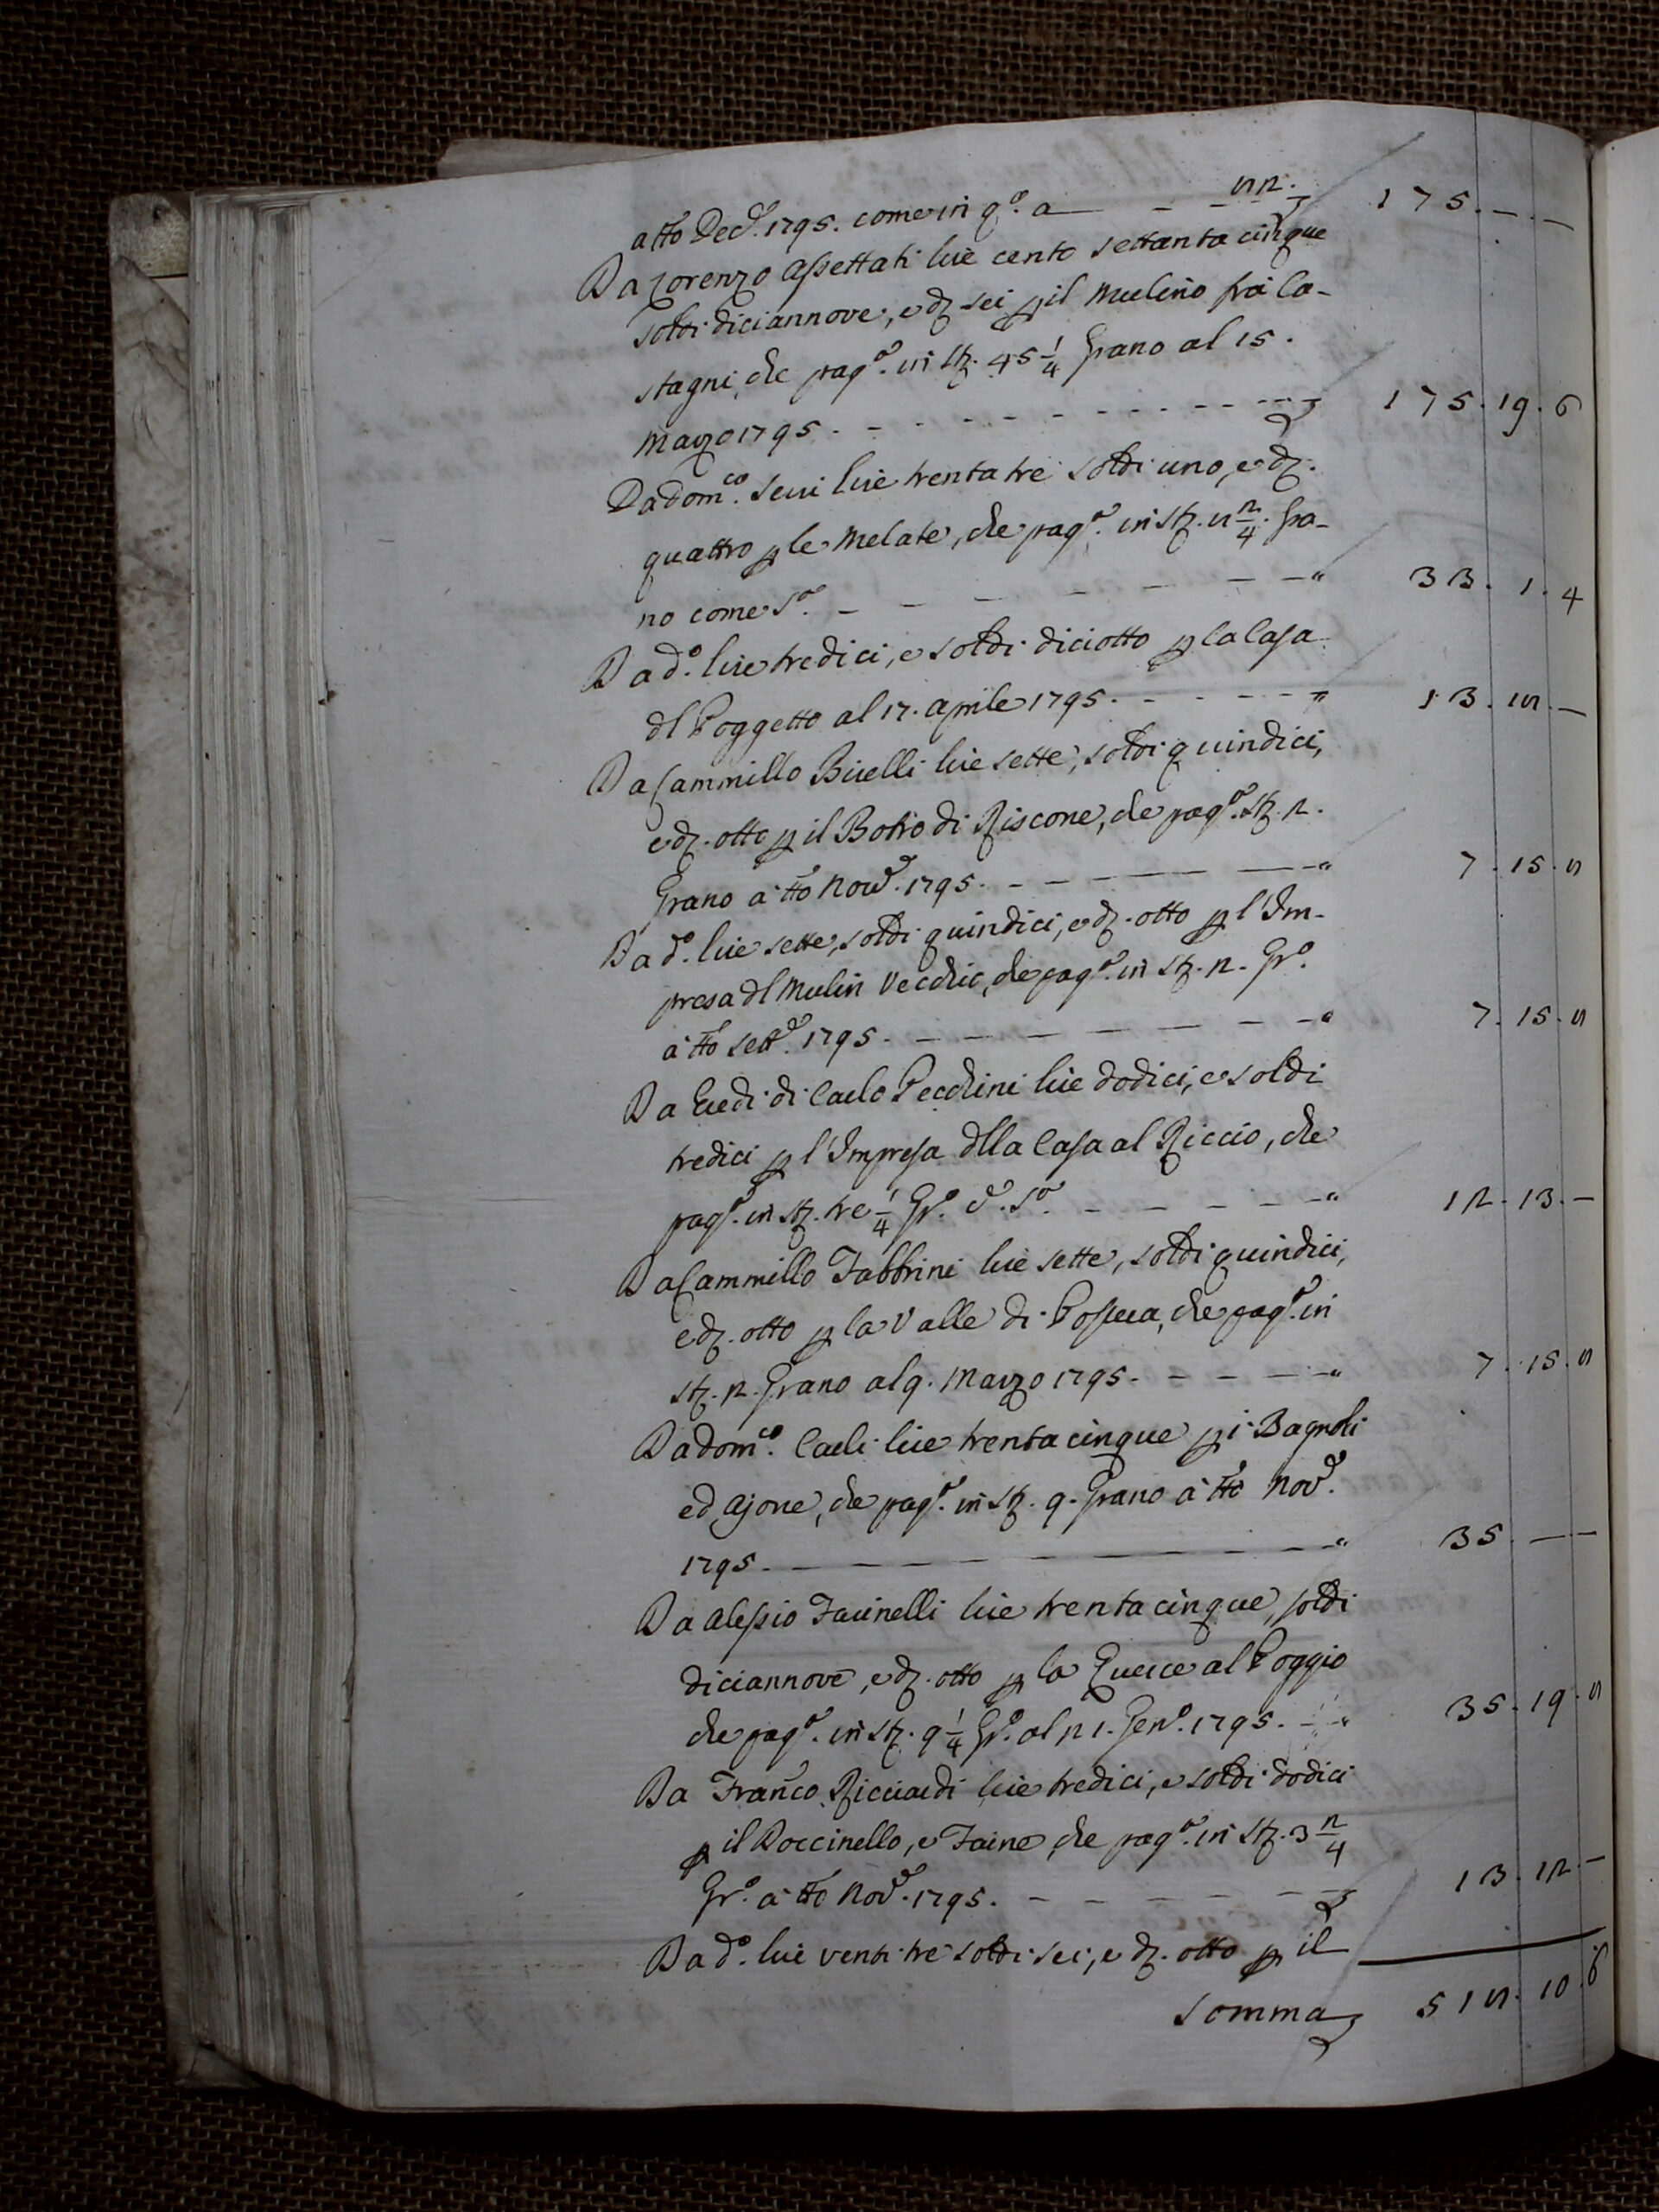 a tt.o Dec.e 1795. come in q.o a — — 82. 175. — —
Da Lorenzo Assettati lire cento settanta cinque
soldi diciannove, e dz sei p il Mulino fra i Ca-
stagni, che pag.o in stz. 45 1/4 Grano al 15.
Marzo 1795. — — — — — 175. 19. 6
Da Dom.co Serri lire trenta tre soldi uno, e dz.
quattro p le Melate, che pag.o in stz. 8 2/4. Gra-
no come s.a — — — — — " 33. 1. 4
Da d.o lire tredici, e soldi diciotto p la Casa
dl Poggetto al 17. Aprile 1795. — — — " 13. 18. —
Da Cammillo Birelli lire sette, soldi quindici,
e dz. otto p il Botro di Riscone, che pag.o stz. 2.
Grano a tt.o Nov.e 1795. — — — — " 7. 15. 8
Da d.o lire sette, soldi quindici, e dz. otto p l'Im-
presa dl Mulin Vecchio, che pag.o in stz. 2. Gr.o
a tt.o Sett.e 1795. — — — — — " 7. 15. 8
Da Eredi di Carlo Pecchini lire dodici, e soldi
tredici p l'Impresa dlla Casa al Riccio, che
pag.o in stz. tre 1/4 Gr.o d.o s.a — — — — " 12. 13. —
Da Cammillo Fabbrini lire sette, soldi quindici,
e dz. otto p la Valle di che pag.o in
stz. 2. Grano al 9. Marzo 1795. — — — " 7. 15. 8
Da Dom.co Carli lire trenta cinque p i Bagnoli
ed Ajone, che pag.o in stz. 9. Grano a tt.o Nov.e
1795. — — — — — — " 35. — —
Da Alessio Farinelli lire trenta cinque, soldi
diciannove, e dz. otto p la Querce al Poggio
che pag.o in stz. 9 1/4 Gr.o al 21. Gen.o 1795. — " 35. 19. 8
Da Franco Ricciardi lire tredici, e soldi dodici
p il Doccinello, e Faine, che pag.o in stz. 3 2/4
Gr.o a tt.o Nov.e 1795. — — — — — 13. 12. —
Da d.o lire venti tre soldi sei, e dz. otto p il
Somma 518. 10. 6